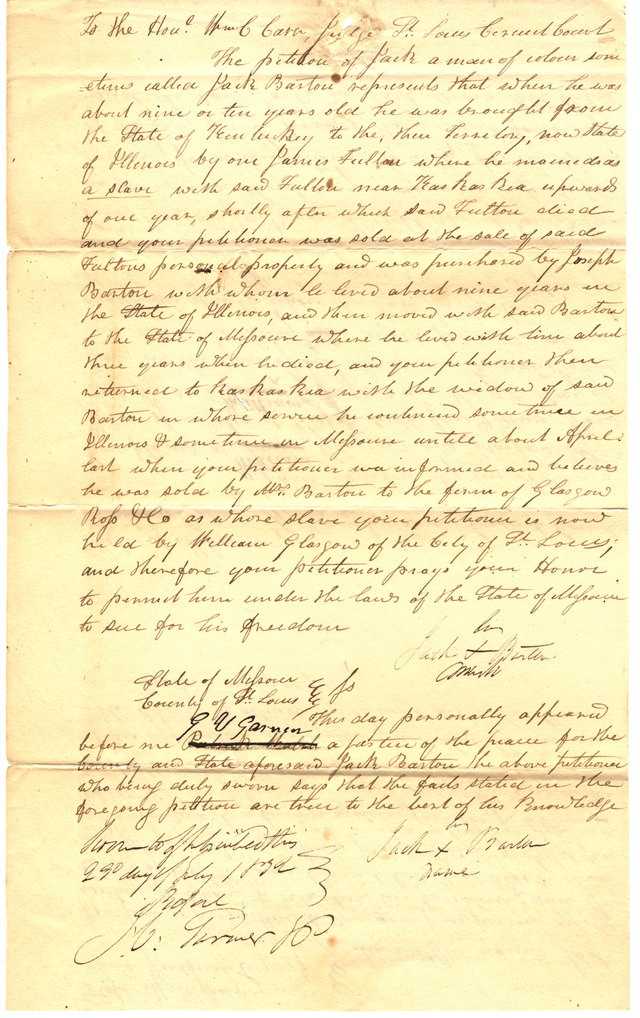 To the Hon.ᵈ Wm C Carr, Judge St. Louis Circuit Court
The petition of Jack a man of colour som
etims called Jack Barton represents that when he was
about nine or ten years old he was brought from
the State of Kentuckey to the, then Territory, now State
of Illinois by one James Fulton where he remained as
a slave with said Fulton near Kaskaskia upwards
of one year, shortly after which said Fulton died
and your petitioner was sold at the sale of said
Fultons personal property and was purchased by Joseph
Barton with whom he lived about nine years in
the State of Illinois, and then moved with said Barton
to the State of Missouri where he lived with him about
three years when he died, and your petitioner then
returned to Kaskaskia with the widow of said
Barton in whose service he continued sometimes in
Illinois & sometime in Missouri untill about April
last when your petitioner was informed and believes
he was sold by Mrs. Barton to the firm of Glasgow
Ross & Co as whose slave your petitioner is now
held by William Glasgow of the City of St. Louis;
and therefore your petitioner prays your Honor
to permit him under the laws of the State of Missouri
to sue for his freedom
his
Jack X Barton
mark
State of Missouri
County of St Louis } Ss
This day personally appeared
before me a justice of the peace for the
County and State aforesaid Jack Barton the above petitioner
who being duly sworn says that the facts stated in the
foregoing petition are true to the best of his Knowledge
Sworn to & subscribed this
23d day of July 1832
Before
Jack X Barton